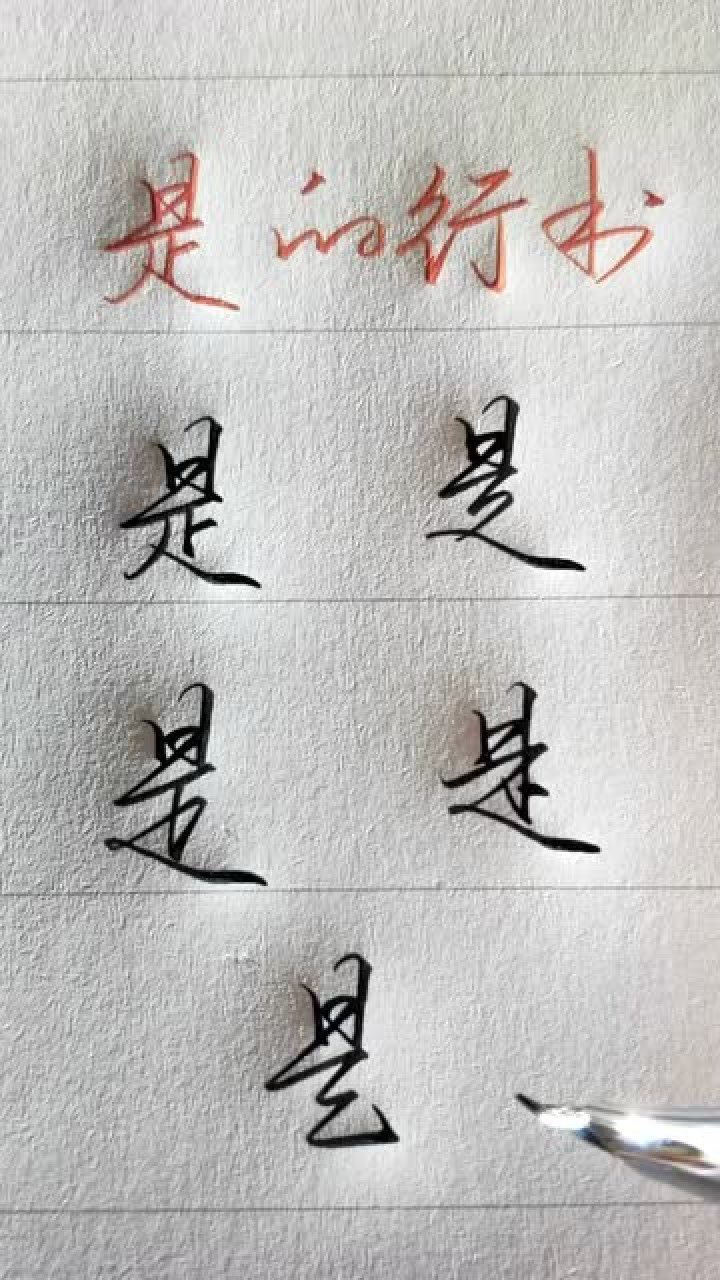 是的行书
是 是
是 是
是